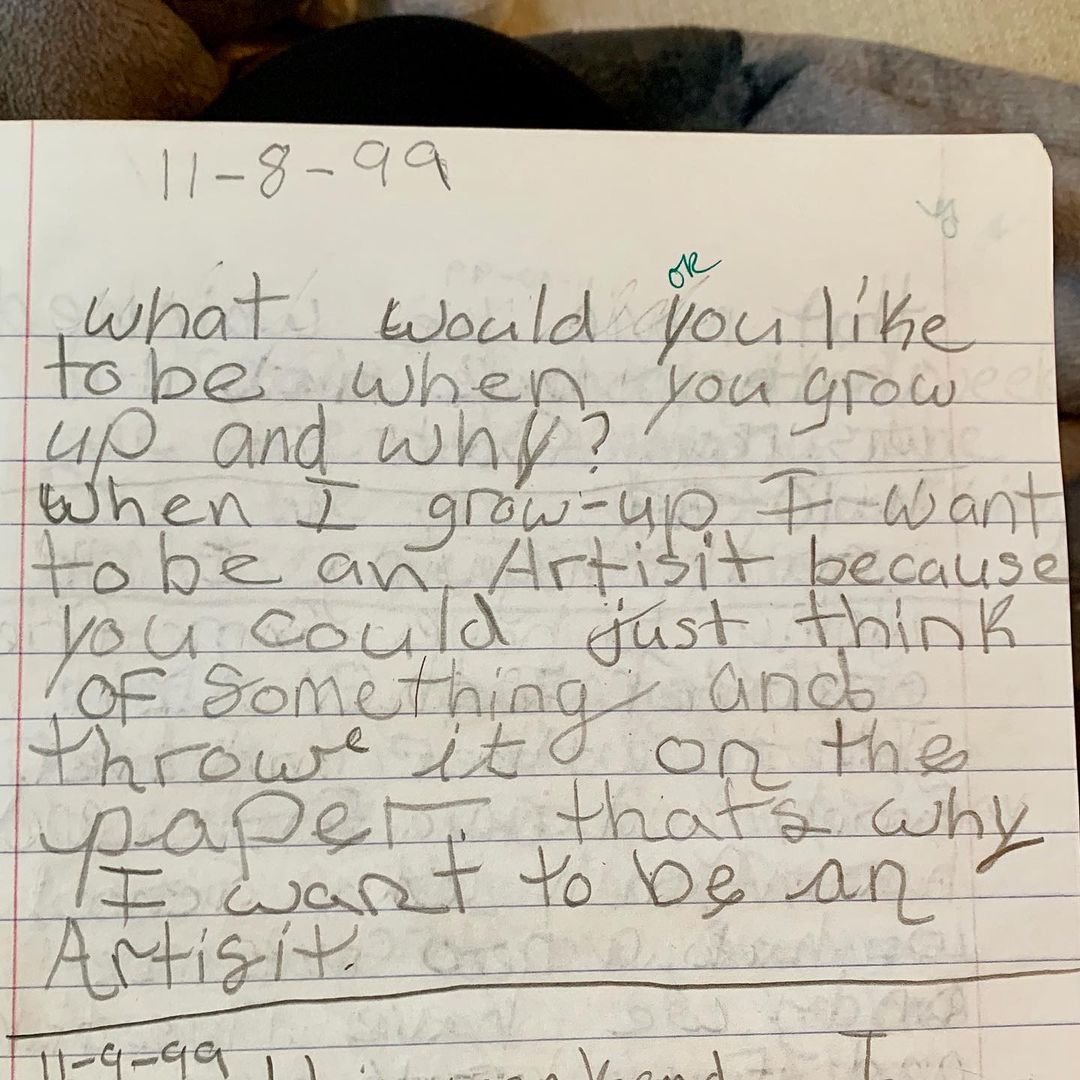 11-8-99
OK
what would you like
to be when you grow
up and why?
When I grow-up I want
to be an Artisit because
you could just think
of something and
throwe it on the
paper that's why
I want to be an
Artisit.
11-9-99